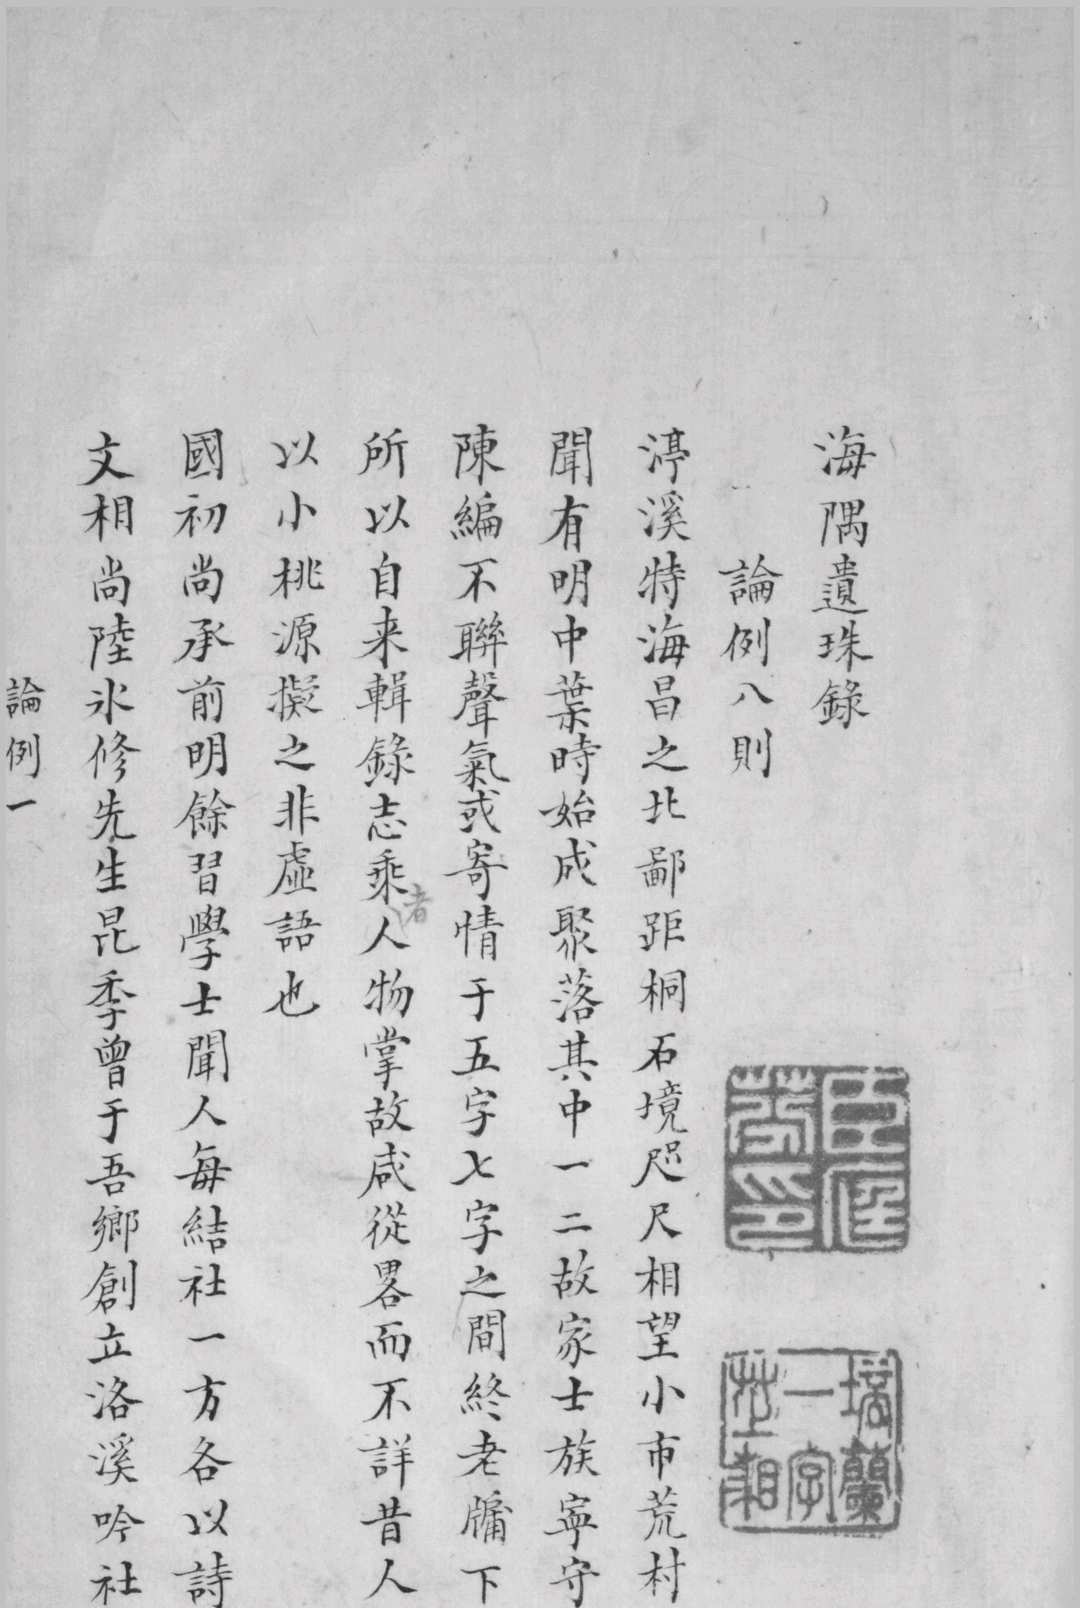 海隅遺珠錄
論例八則
渟溪特海昌之北鄙距桐石境咫尺相望小市荒村
聞有明中葉時始成聚落其中一二故家士族寧守
陳編不聯聲氣或寄情于五字七字之間終老牖下
所以自来輯錄志乘者人物掌故咸從畧而不詳昔人
以小桃源擬之非虛語也
國初尚承前明餘習學士聞人每結社一方各以詩
文相尚陸氷修先生昆季曾于吾鄉創立洛溪吟社
論例一